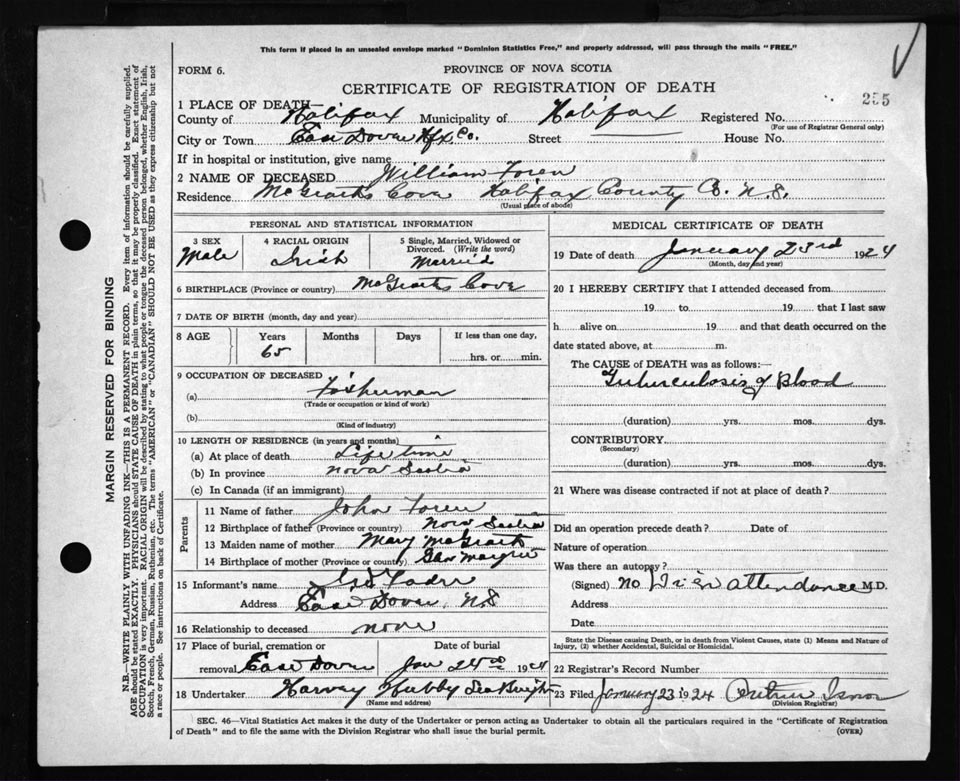 This form if placed in an unsealed envelope marked "Dominion Statistics Free," and properly addressed, will pass through the mails "FREE."
FORM 6.
PROVINCE OF NOVA SCOTIA
CERTIFICATE OF REGISTRATION OF DEATH
255
1 PLACE OF DEATH—
County of Halifax Municipality of Halifax Registered No.
(For use of Registrar General only)
City or Town East Dover Hfx. Co. Street House No.
If in hospital or institution, give name
2 NAME OF DECEASED William Foren
Residence McGraths Cove Halifax County N.S.
(Usual place of abode)
PERSONAL AND STATISTICAL INFORMATION
3 SEX
Male
4 RACIAL ORIGIN
Irish
5 Single, Married, Widowed or Divorced. (Write the word)
Married
6 BIRTHPLACE (Province or country) McGraths Cove
7 DATE OF BIRTH (month, day and year)
8 AGE
Years
65
Months
Days
If less than one day,
hrs. or min.
9 OCCUPATION OF DECEASED
(a) Fisherman
(Trade or occupation or kind of work)
(b)
(Kind of industry)
10 LENGTH OF RESIDENCE (in years and months)
(a) At place of death Life time
(b) In province Nova Scotia
(c) In Canada (if an immigrant)
Parents
11 Name of father John Foren
12 Birthplace of father (Province or country) Nova Scotia
13 Maiden name of mother Mary McGrath
14 Birthplace of mother (Province or country)
15 Informant's name
Address East Dover N.S
16 Relationship to deceased none
17 Place of burial, cremation or removal East Dover
Date of burial
Jan 24 1924
18 Undertaker Harvey Hubley
(Name and address)
MEDICAL CERTIFICATE OF DEATH
19 Date of death January 23rd 1924
(Month, day and year)
20 I HEREBY CERTIFY that I attended deceased from
19 to 19 that I last saw
h alive on 19 and that death occurred on the
date stated above, at m.
The CAUSE of DEATH was as follows:
Tuberculosis of Blood
(duration) yrs. mos. dys.
CONTRIBUTORY
(Secondary)
(duration) yrs. mos. dys.
21 Where was disease contracted if not at place of death?
Did an operation precede death? Date of
Nature of operation
Was there an autopsy?
(Signed) no attendance M.D.
Address
Date
State the Disease causing Death, or in death from Violent Causes, state (1) Means and Nature of
Injury, (2) whether Accidental, Suicidal or Homicidal.
22 Registrar's Record Number
23 Filed January 23 1924 Arthur Isnor
(Division Registrar)
SEC. 46—Vital Statistics Act makes it the duty of the Undertaker or person acting as Undertaker to obtain all the particulars required in the "Certificate of Registration
of Death" and to file the same with the Division Registrar who shall issue the burial permit.
(OVER)
MARGIN RESERVED FOR BINDING
N.B.—WRITE PLAINLY WITH UNFADING INK—THIS IS A PERMANENT RECORD. Every item of information should be carefully supplied.
AGE should be stated EXACTLY. PHYSICIANS should STATE CAUSE OF DEATH in plain terms, so that it may be properly classified. Exact statement of
OCCUPATION is very important. RACIAL ORIGIN will be described by stating to what people or tongue the deceased person belonged, whether English, Irish,
Scotch, French, German, Russian, Ruthenian, etc. The terms "AMERICAN" or "CANADIAN" SHOULD NOT BE USED as they express citizenship but not
a race or people. See instructions on back of Certificate.